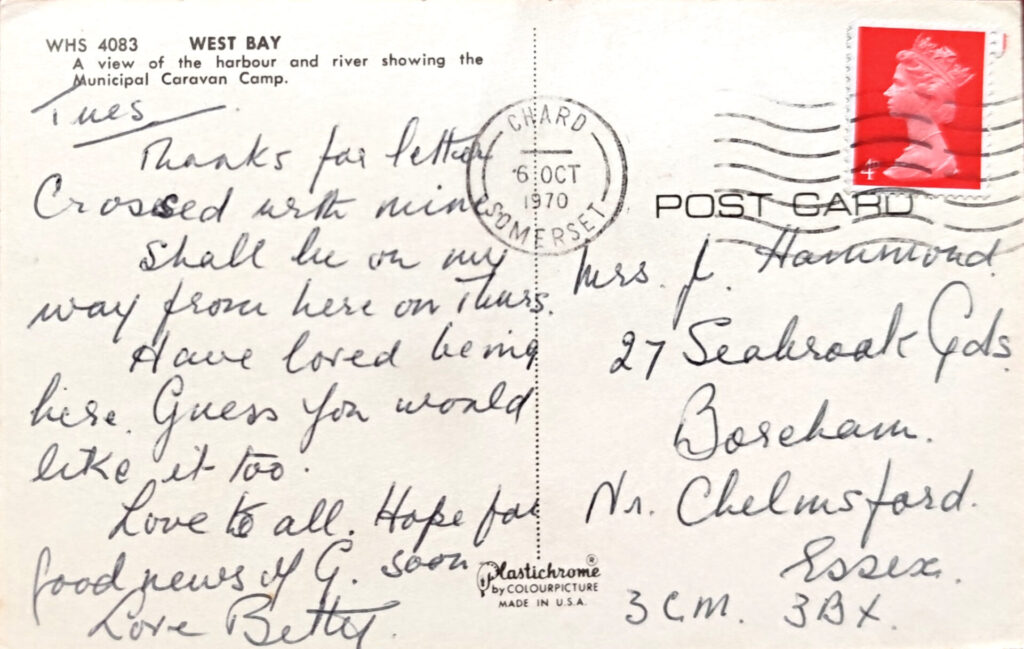 WHS 4083 WEST BAY
A view of the harbour and river showing the
Municipal Caravan Camp.
Tues.
Thanks for letter
Crossed with mine
Shall be on my
way from here on Thurs.
Have loved being
here. Guess you would
like it too.
Love to all. Hope for
good news of G. soon
Love Betty.
CHARD
6 OCT
1970
SOMERSET
4D
POST CARD
Mrs. J. Hammond.
27 Seabrook Gds.
Boreham.
Nr. Chelmsford.
Essex.
3CM. 3BX.
Plastichrome®
by COLOURPICTURE
MADE IN U.S.A.